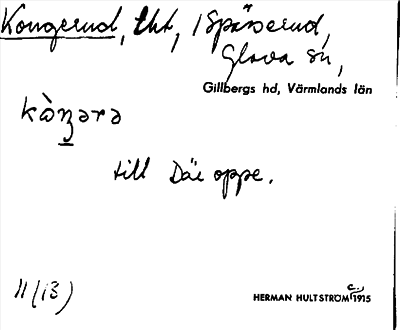 Kongerud, tht, / Spässerud,
Glava sn,
Gillbergs hd, Värmlands län
kὼŋərə
till Där oppe.
11 (13)
HERMAN HULTSTRÖM C. 1915